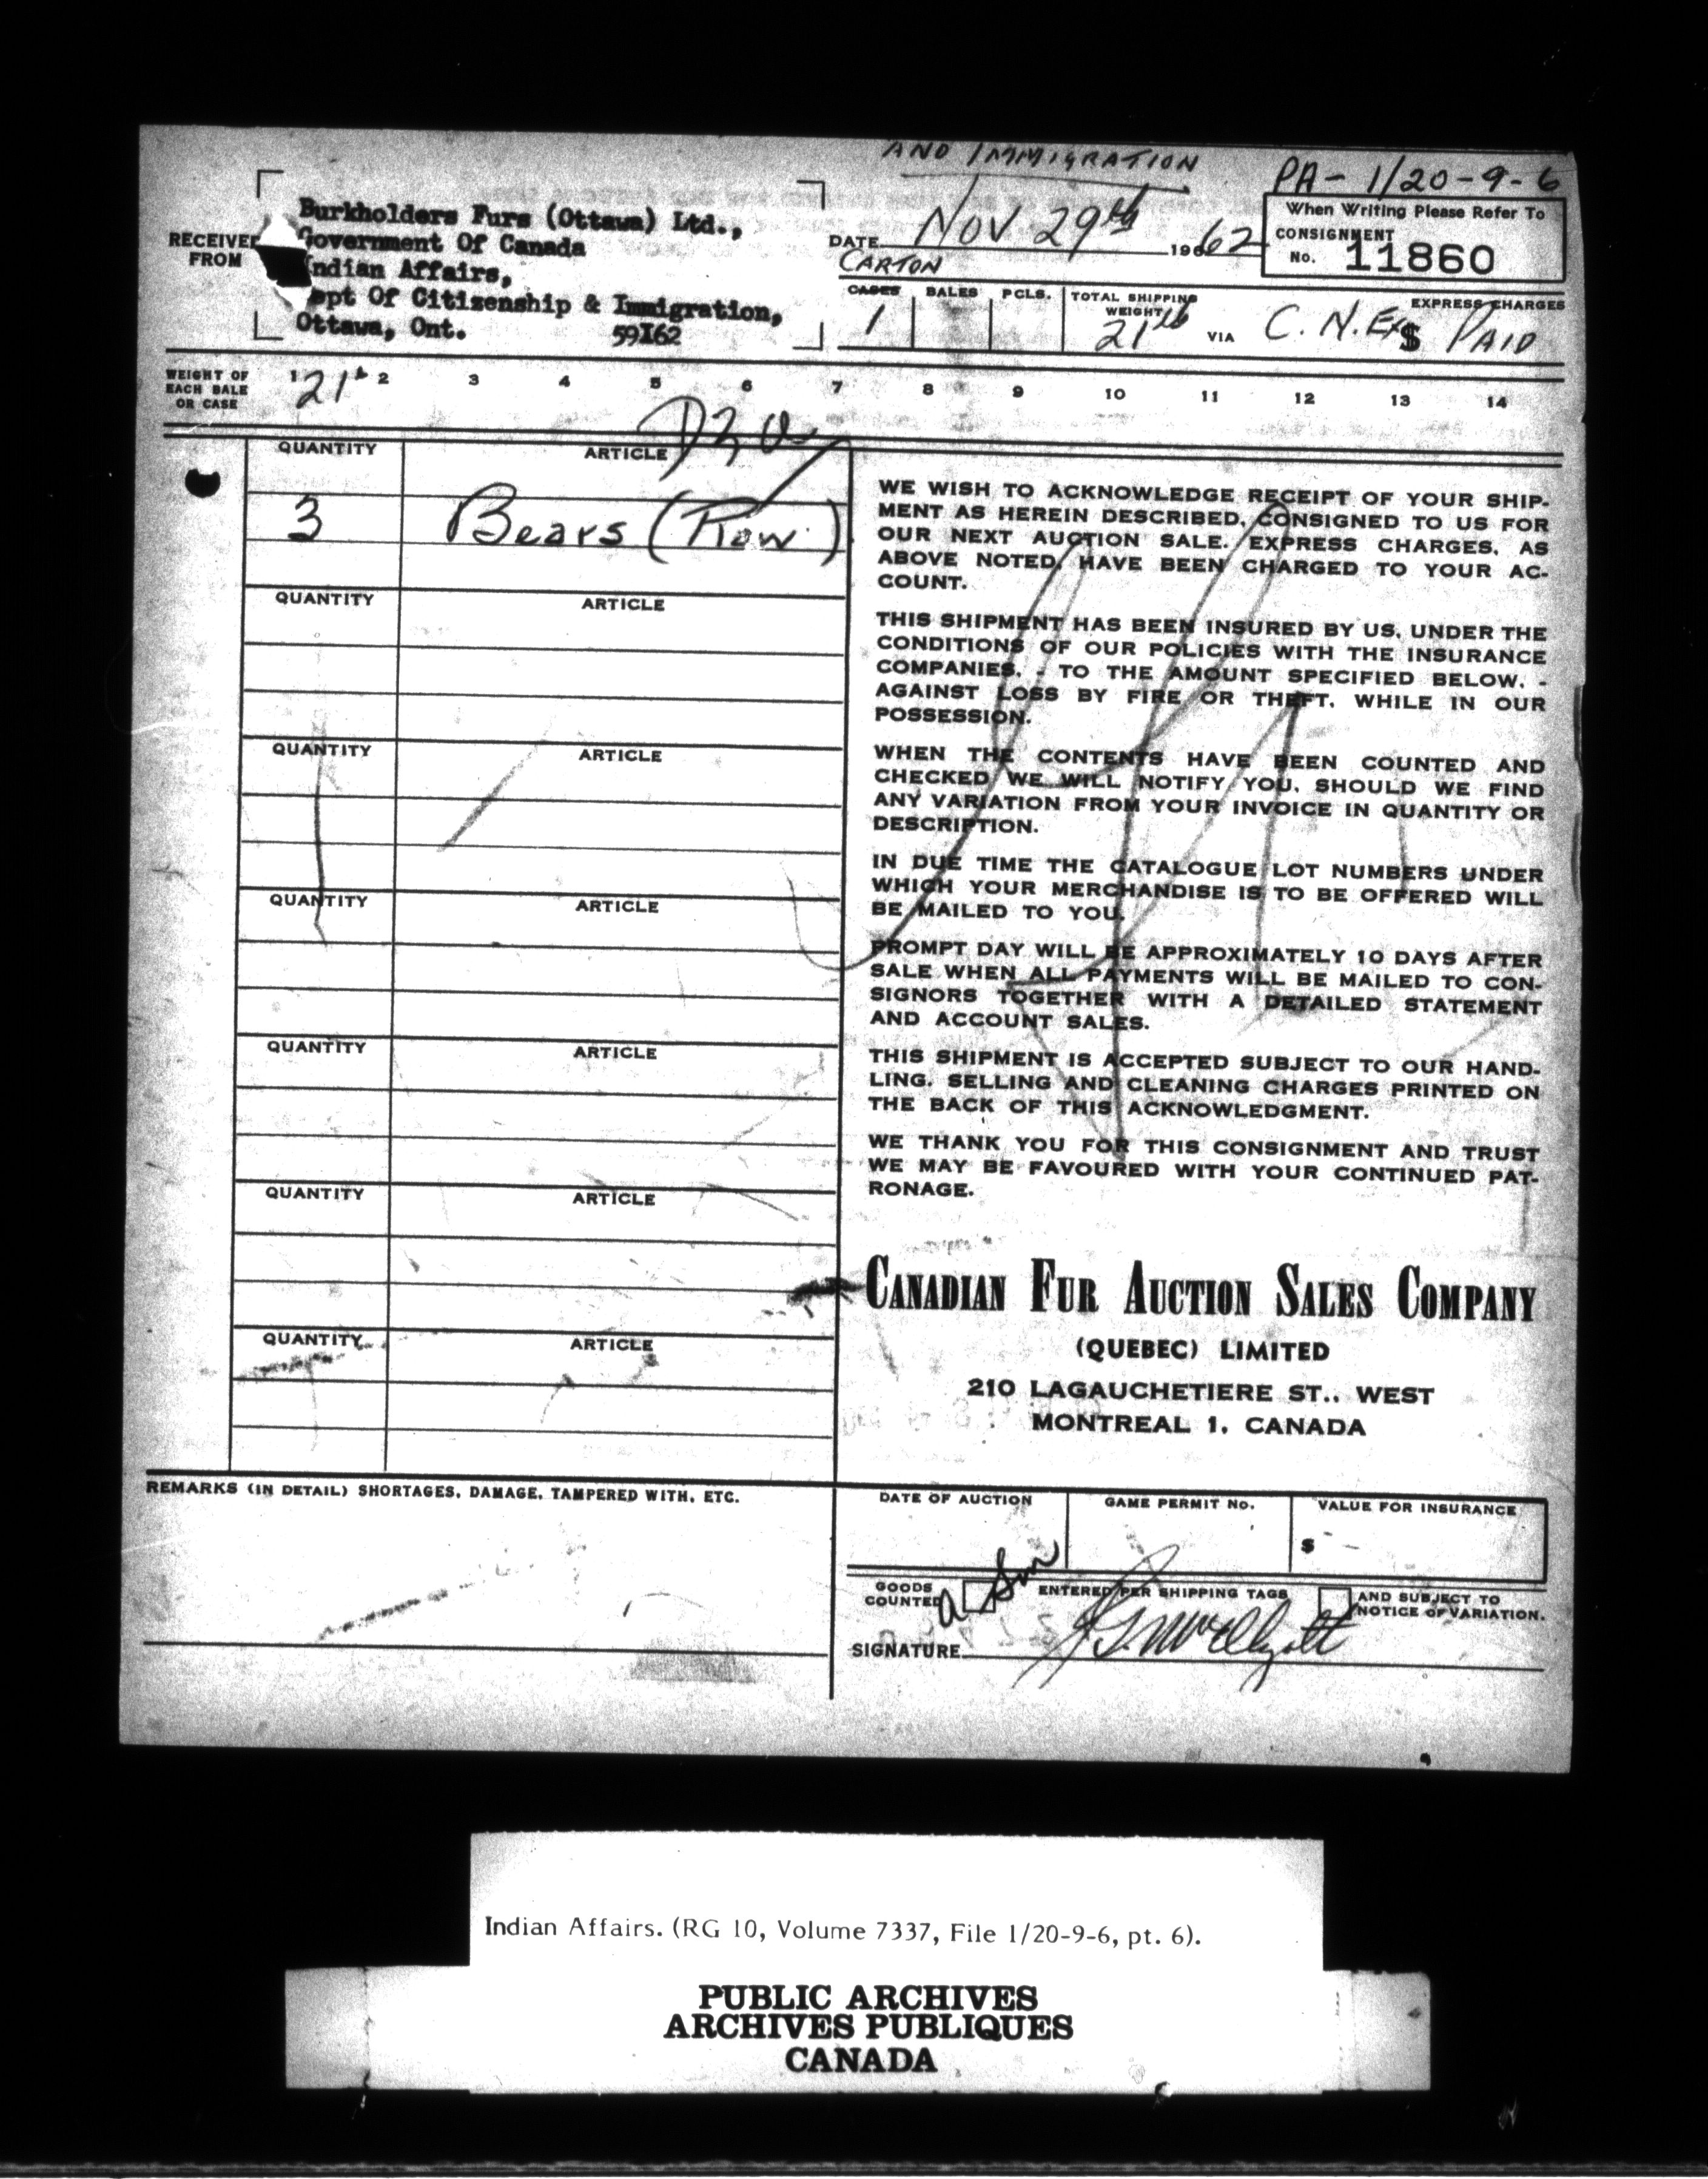 AND IMMIGRATION
PA- 1/20-9-6
Burkholders Furs (Ottawa) Ltd.,
RECEIVED FROM
Government Of Canada
Indian Affairs,
ept Of Citizenship & Immigration,
Ottawa, Ont. 59I62
DATE NOV 29th 1962
When Writing Please Refer To
CONSIGNMENT
No. 11860
CARTON
CASES BALES PCLS. TOTAL SHIPPING WEIGHT EXPRESS CHARGES
1 21 lb VIA C. N. Ex $ PAID
WEIGHT OF EACH BALE OR CASE
1 2 3 4 5 6 7 8 9 10 11 12 13 14
21
QUANTITY ARTICLE
3 Bears (Raw)
QUANTITY ARTICLE
QUANTITY ARTICLE
QUANTITY ARTICLE
QUANTITY ARTICLE
QUANTITY ARTICLE
QUANTITY ARTICLE
WE WISH TO ACKNOWLEDGE RECEIPT OF YOUR SHIP-
MENT AS HEREIN DESCRIBED, CONSIGNED TO US FOR
OUR NEXT AUCTION SALE. EXPRESS CHARGES, AS
ABOVE NOTED, HAVE BEEN CHARGED TO YOUR AC-
COUNT.
THIS SHIPMENT HAS BEEN INSURED BY US, UNDER THE
CONDITIONS OF OUR POLICIES WITH THE INSURANCE
COMPANIES, - TO THE AMOUNT SPECIFIED BELOW, -
AGAINST LOSS BY FIRE OR THEFT, WHILE IN OUR
POSSESSION.
WHEN THE CONTENTS HAVE BEEN COUNTED AND
CHECKED WE WILL NOTIFY YOU, SHOULD WE FIND
ANY VARIATION FROM YOUR INVOICE IN QUANTITY OR
DESCRIPTION.
IN DUE TIME THE CATALOGUE LOT NUMBERS UNDER
WHICH YOUR MERCHANDISE IS TO BE OFFERED WILL
BE MAILED TO YOU.
PROMPT DAY WILL BE APPROXIMATELY 10 DAYS AFTER
SALE WHEN ALL PAYMENTS WILL BE MAILED TO CON-
SIGNORS TOGETHER WITH A DETAILED STATEMENT
AND ACCOUNT SALES.
THIS SHIPMENT IS ACCEPTED SUBJECT TO OUR HAND-
LING, SELLING AND CLEANING CHARGES PRINTED ON
THE BACK OF THIS ACKNOWLEDGMENT.
WE THANK YOU FOR THIS CONSIGNMENT AND TRUST
WE MAY BE FAVOURED WITH YOUR CONTINUED PAT-
RONAGE.
CANADIAN FUR AUCTION SALES COMPANY
(QUEBEC) LIMITED
210 LAGAUCHETIERE ST., WEST
MONTREAL 1, CANADA
REMARKS (IN DETAIL) SHORTAGES, DAMAGE, TAMPERED WITH, ETC.
DATE OF AUCTION GAME PERMIT No. VALUE FOR INSURANCE
$
GOODS COUNTED ENTERED PER SHIPPING TAGS AND SUBJECT TO NOTICE OF VARIATION.
SIGNATURE
Indian Affairs. (RG 10, Volume 7337, File 1/20-9-6, pt. 6).
PUBLIC ARCHIVES
ARCHIVES PUBLIQUES
CANADA